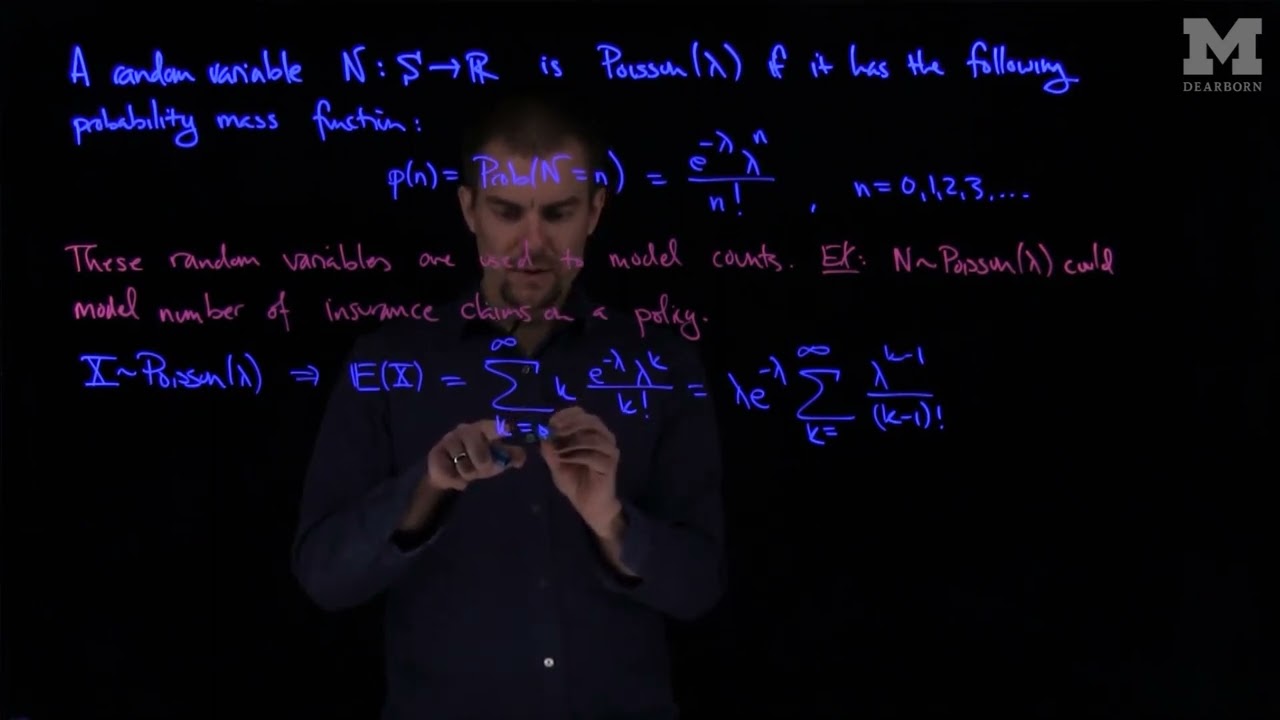 M
DEARBORN
A random variable N : S → ℝ is Poisson(λ) if it has the following
probability mass function:
p(n) = Prob(N = n) = \frac{e^{-λ} λ^n}{n!} , n = 0, 1, 2, 3, ....
These random variables are used to model counts. EX: N ~ Poisson(λ) could
model number of insurance claims on a policy.
X ~ Poisson(λ) ⇒ 𝔼(X) = \sum_{k=}^{∞} k \frac{e^{-λ} λ^k}{k!} = λe^{-λ} \sum_{k=}^{∞} \frac{λ^{k-1}}{(k-1)!}